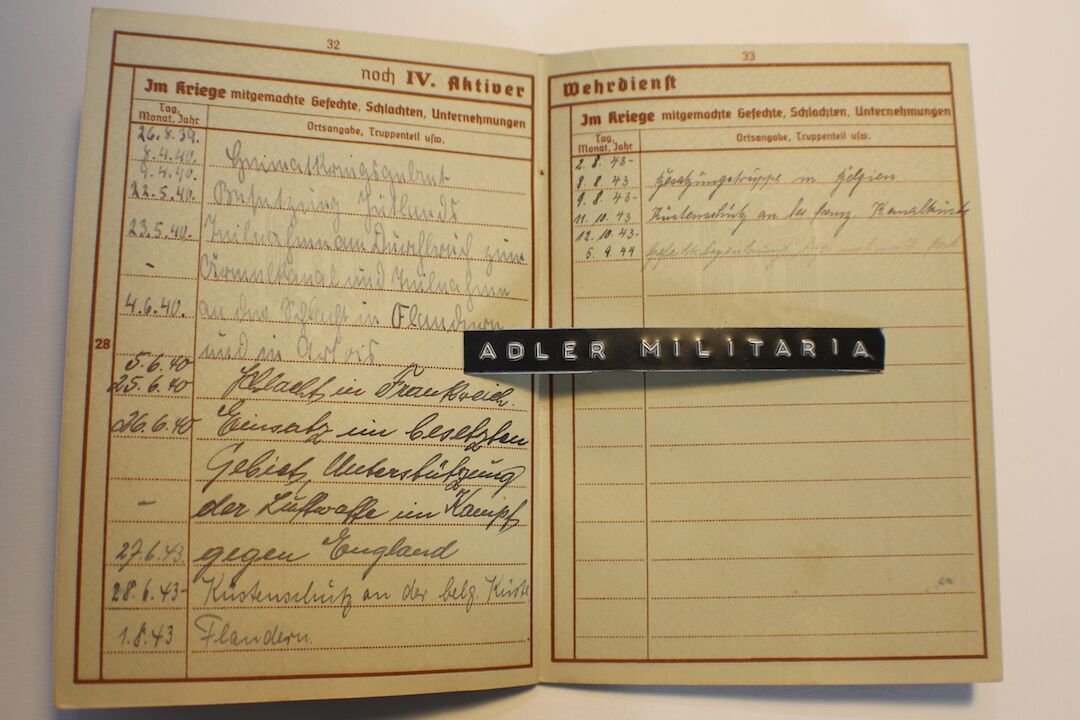 32
noch IV. Aktiver
Im Kriege mitgemachte Gefechte, Schlachten, Unternehmungen
Tag, Monat, Jahr
Ortsangabe, Truppenteil usw.
26.8.39.
8.4.40. Heimatkriegsgebiet
9.4.40.
22.5.40. Besetzung Jütlands
23.5.40. Teilnahme am Durchbruch zum
- Ärmelkanal und Teilnahme
4.6.40. an der Schlacht in Flandern
und in Artois
28
5.6.40
25.6.40 Schlacht in Frankreich.
26.6.40 Einsatz im besetzten
Gebiet, Unterstützung
- der Luftwaffe im Kampf
27.6.43. gegen England
28.6.43- Küstenschutz an der belg. Küste
1.8.43 Flandern.
33
Wehrdienst
Im Kriege mitgemachte Gefechte, Schlachten, Unternehmungen
Tag, Monat, Jahr
Ortsangabe, Truppenteil usw.
2.8.43-
8.8.43 Besatzungstruppe in Belgien
9.8.43-
11.10.43 Küstenschutz an der franz. Kanalküste
12.10.43-
5.9.44
ADLER MILITARIA